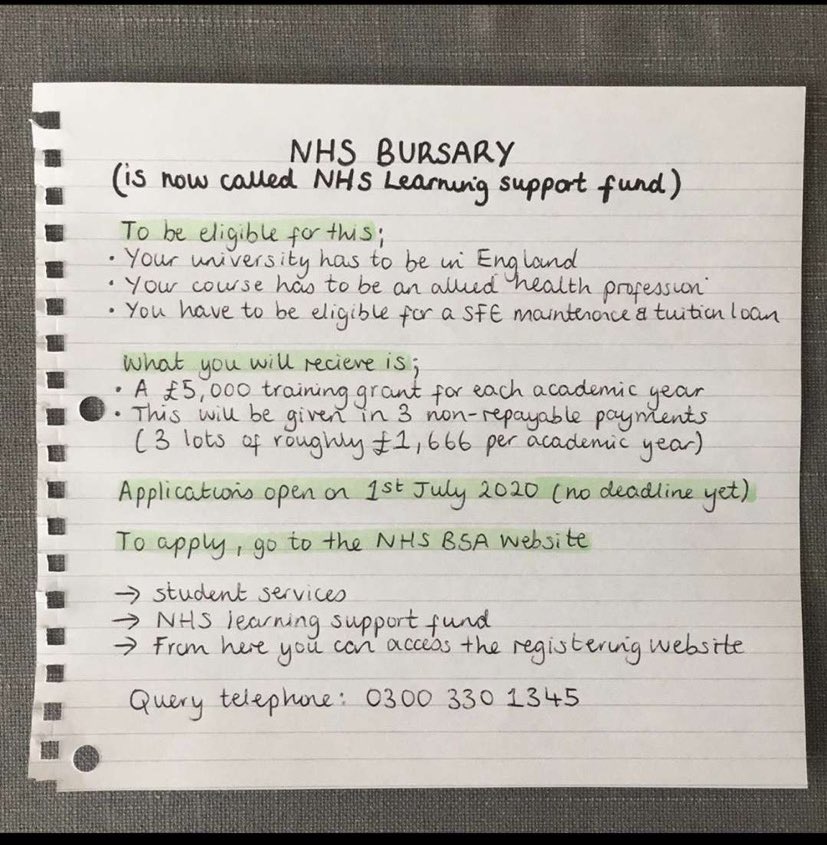 NHS BURSARY
(is now called NHS Learning support fund)
To be eligible for this;
• Your university has to be in England
• Your course has to be an allied "health profession"
• You have to be eligible for a SFE maintenence & tuition loan
What you will recieve is;
• A £5,000 training grant for each academic year
• This will be given in 3 non-repayable payments
(3 lots of roughly £1,666 per academic year)
Applications open on 1st July 2020 (no deadline yet)
To apply, go to the NHS BSA website
→ student services
→ NHS learning support fund
→ From here you can access the registering website
Query telephone: 0300 330 1345